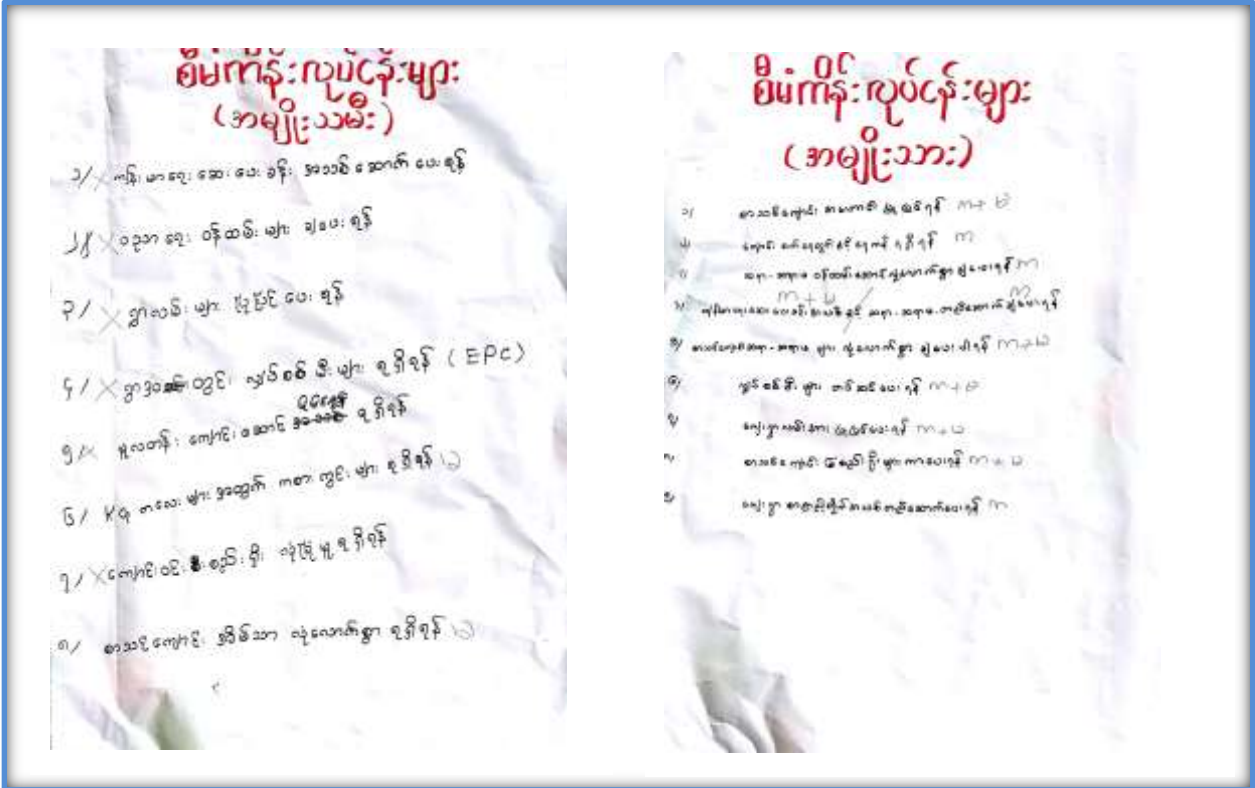 စီမံကိန်းလုပ်ငန်းများ
(အမျိုးသမီး)
၁/ × ကျန်းမာရေး ဆေးပေးခန်း အသစ်ဆောက်ပေးရန်
၂/ × ပညာရေး ဝန်ထမ်းများ ချပေးရန်
၃/ × ရွာလမ်းများ ပြုပြင်ပေးရန်
၄/ × ရွာ တွင်း လျှပ်စစ်မီးများ ရရှိရန် (EPC)
၅/ × မူလတန်း ကျောင်းဆောင် ရရှိရန်
၆/ KG ကလေးများအတွက် ကစားကွင်းများ ရရှိရန်
၇/ × ကျောင်းဝင်း စည်းရိုး လုံခြုံမှု ရရှိရန်
၈/ စာသင်ကျောင်း အိမ်သာ လုံလောက်စွာ ရရှိရန်
စီမံကိန်းလုပ်ငန်းများ
(အမျိုးသား)
၁/ စာသင်ကျောင်း အဟောင်း ပြုပြင်ရန် က+မ
၂/ ကျောင်း ရရှိရန် က
၃/ ဆရာ-ဆရာမ ဝန်ထမ်းဆောင် လုံလောက်စွာ ချပေးရန် က
က+မ က
၄/ ကျန်းမာရေးဆေးပေးခန်း နှင့် ဆရာ-ဆရာမ
၅/ ဆရာ-ဆရာမ များ လုံလောက်စွာ ချပေးပါရန် က+မ
၆/ လျှပ်စစ်မီးများ တပ်ဆင်ပေးရန် က+မ
၇/ ကျေးရွာလမ်းအား ပြုပြင်ပေးရန် က+မ
၈/ စာသင်ကျောင်း စည်းရိုးများကာပေးရန် က+မ
၉/ ကျေးရွာ စာကြည့်တိုက်အသစ်တည်ဆောက်ပေးရန် က